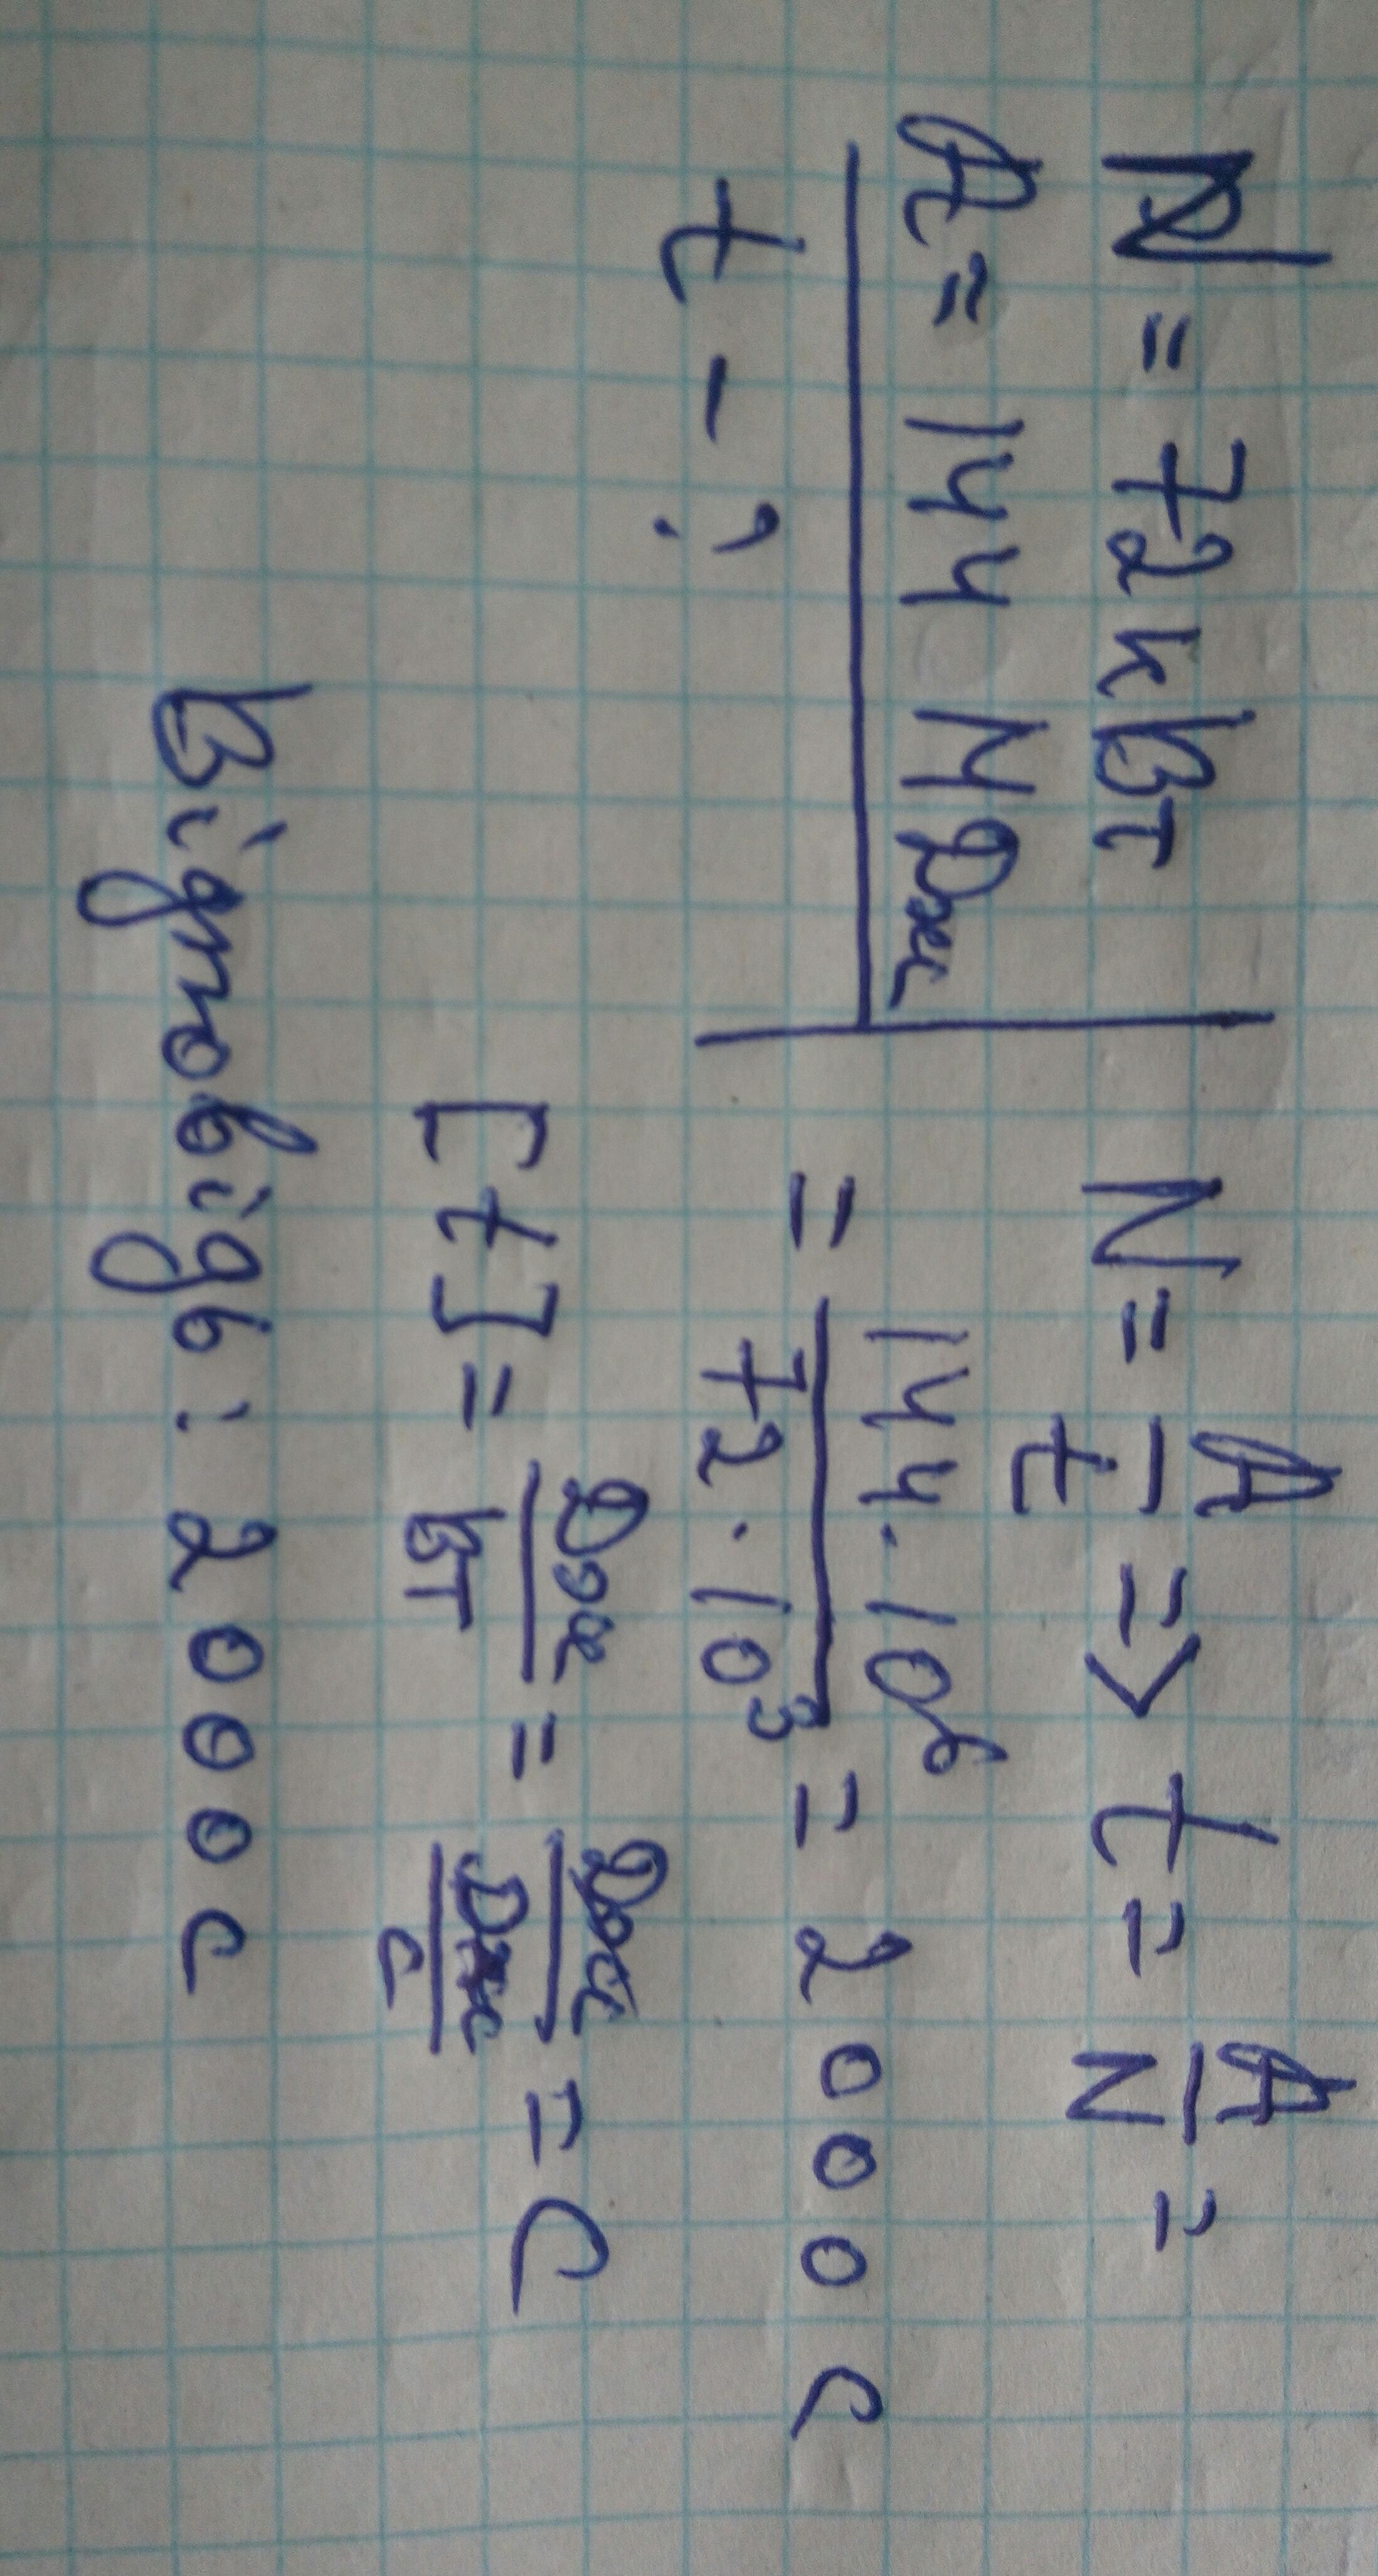 N = 72 кВт
A = 144 МДж
t - ?
N = A/t => t = A/N =
= 144 · 10⁶ / 72 · 10³ = 2000 с
[t] = Дж/Вт = Дж/(Дж/с) = с
Відповідь: 2000 с